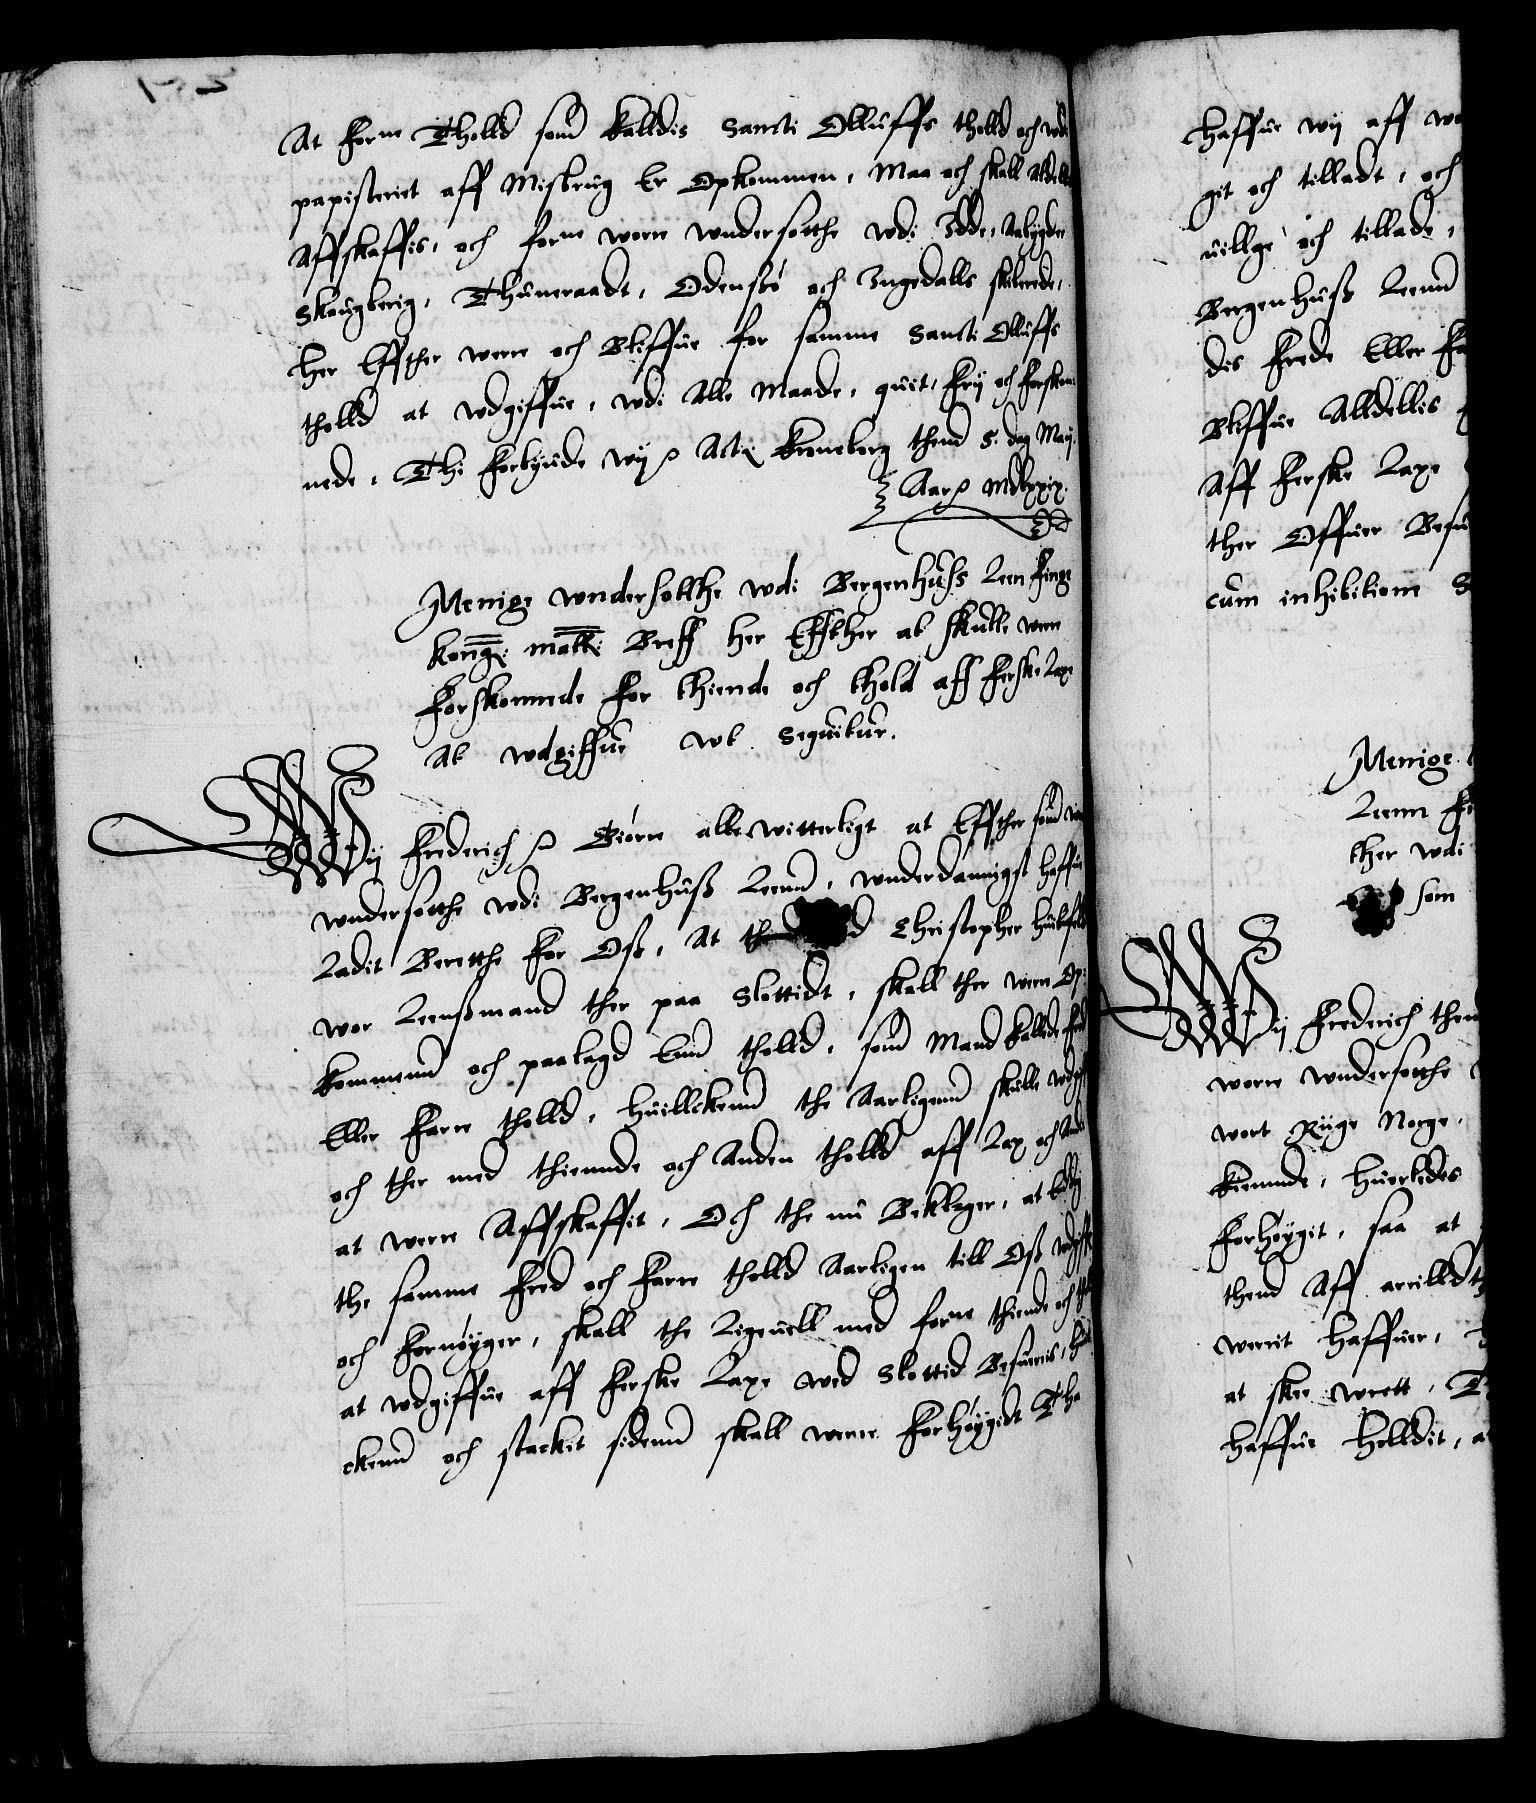 At forne Tholld som kalldis Sancti Olluffs tholld och vdi
papisteriet aff Misbrug Er Opkommen, Maa och skall Aldelis
Affskaffis, och forne vore vndersotthe vdi Idde, Aabygde
Skougberig, Thuneraadt, Odensø och Ingedalls skibrede,
her Effther were och Bliffue for samme Sancti Olluffs
tholld at vdgiffue, vdi Alle Maade, quit, frij och forskon-
nede, Thi forbyude wij Actũ Kroneborg thend 5. dag Maij.
Aar Mdlxxix.
Menige vndersotthe vdi Bergenhuss Leen finge
kong: matt: Breff her Effther at skulle were
forskonnede for thiende och thold aff ferske Laxe
At vdgiffue vt sequitur.
Wij Frederich Giøre alle witterligt at Effther som vore
vndersotthe vdi Bergenhuss Leenn, vnderdannigst haffue
Ladit Berette for Oss, At Christopher huitfeld
wor Leenssmand ther paa Slottidt, skall ther were Op-
kommenn och paalagd Enn tholld, som Mand kallde fred
Eller farre tholld, huillckenn the Aarligenn skulle vdgiff
och ther med thiennde och Anden tholld aff Lax och Andit
at were Affskaffit, Och the nu Beklager, at
the samme fred och farre tholld Aarligen till Oss vdgiffr
och fornøyger, skall the Ligeuell med forne thiende och
at vdgiffue aff ferske Laxe wed Slottid Besueris, hui
ckenn och sterkit sidenn skall were forhøygidt Tha
haffue wij aff
git och tilladt, och
uillge och tillade,
Bergenhuss Leenn
dis frede Eller
Bliffue Alldellis
Aff ferske Laxe
ther Offuer
cum inhibitione
Menige
Leenn
ther vdi
som
Wij Frederich
worre vndersotthe
wort Riige Norge,
kiennde, huorledes
forhøygit, saa at
thend Aff arrilld
werit haffuer,
at skee wrett,
haffue holldit,